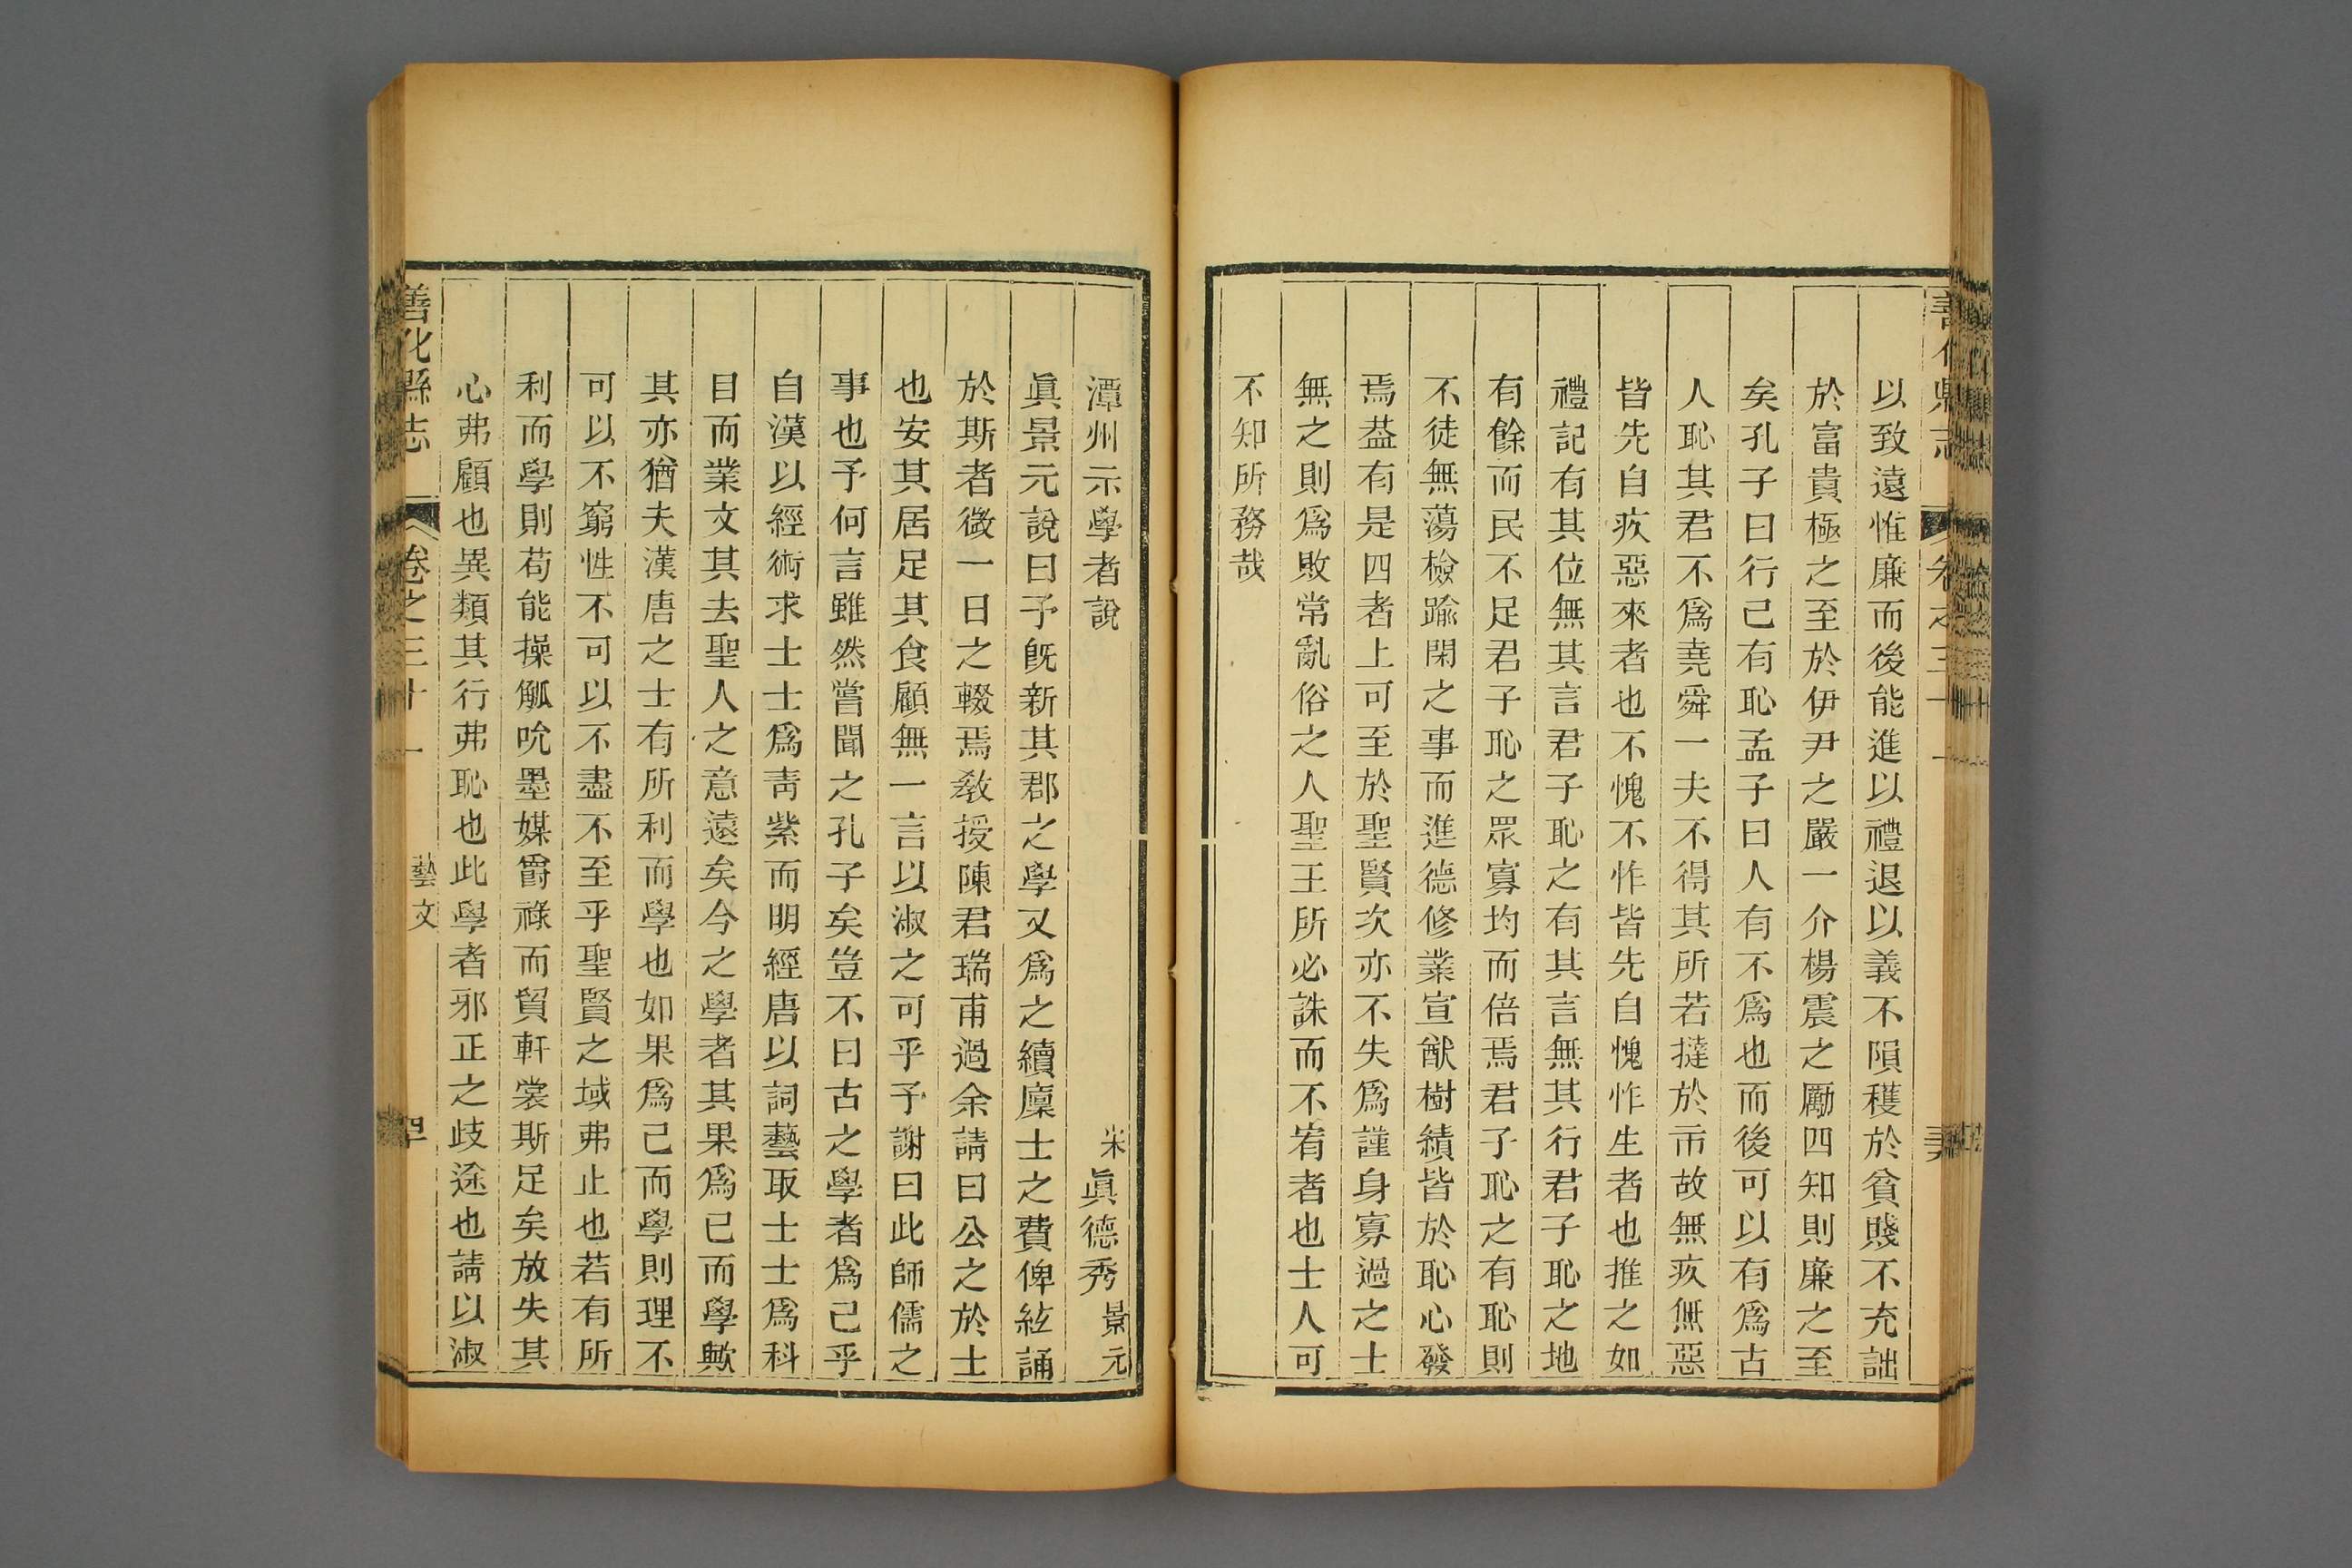 以致遠惟廉而後能進以禮退以義不隕穫於貧賤不充詘
於富貴極之至於伊尹之嚴一介楊震之勵四知則廉之至
矣孔子曰行己有恥孟子曰人有不爲也而後可以有爲古
人恥其君不爲堯舜一夫不得其所若撻於市故無疚無惡
皆先自疚惡來者也不愧不怍皆先自愧怍生者也推之如
禮記有其位無其言君子恥之有其言無其行君子恥之地
有餘而民不足君子恥之眾寡均而倍焉君子恥之有恥則
不徒無蕩檢踰閑之事而進德修業宣猷樹績皆於恥心發
焉葢有是四者上可至於聖賢次亦不失爲謹身寡過之士
無之則爲敗常亂俗之人聖王所必誅而不宥者也士人可
不知所務哉
潭州示學者說 宋 眞德秀 景元
眞景元說曰予旣新其郡之學又爲之續廩士之費俾絃誦
於斯者微一日之輟焉敎授陳君瑞甫過余請曰公之於士
也安其居足其食顧無一言以淑之可乎予謝曰此師儒之
事也予何言雖然嘗聞之孔子矣豈不曰古之學者爲己乎
自漢以經術求士士爲靑紫而明經唐以詞藝取士士爲科
目而業文其去聖人之意遠矣今之學者其果爲已而學歟
其亦猶夫漢唐之士有所利而學也如果爲己而學則理不
可以不窮性不可以不盡不至乎聖賢之域弗止也若有所
利而學則苟能操觚吮墨媒爵祿而貿軒裳斯足矣放失其
心弗顧也異類其行弗恥也此學者邪正之歧途也請以淑
善化縣志 卷之三十一 藝文